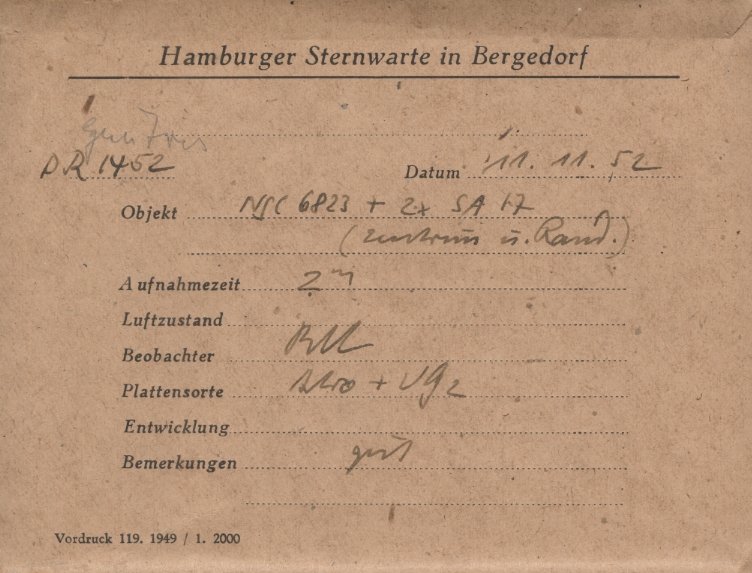 Hamburger Sternwarte in Bergedorf
DR 1452
Datum 11. 11. 52
Objekt NGC 6823 + 2x SA 17
(Zentrum u. Rand.)
Aufnahmezeit 2m
Luftzustand
Beobachter
Plattensorte Astro + UG2
Entwicklung
Bemerkungen gut
Vordruck 119. 1949 / 1. 2000